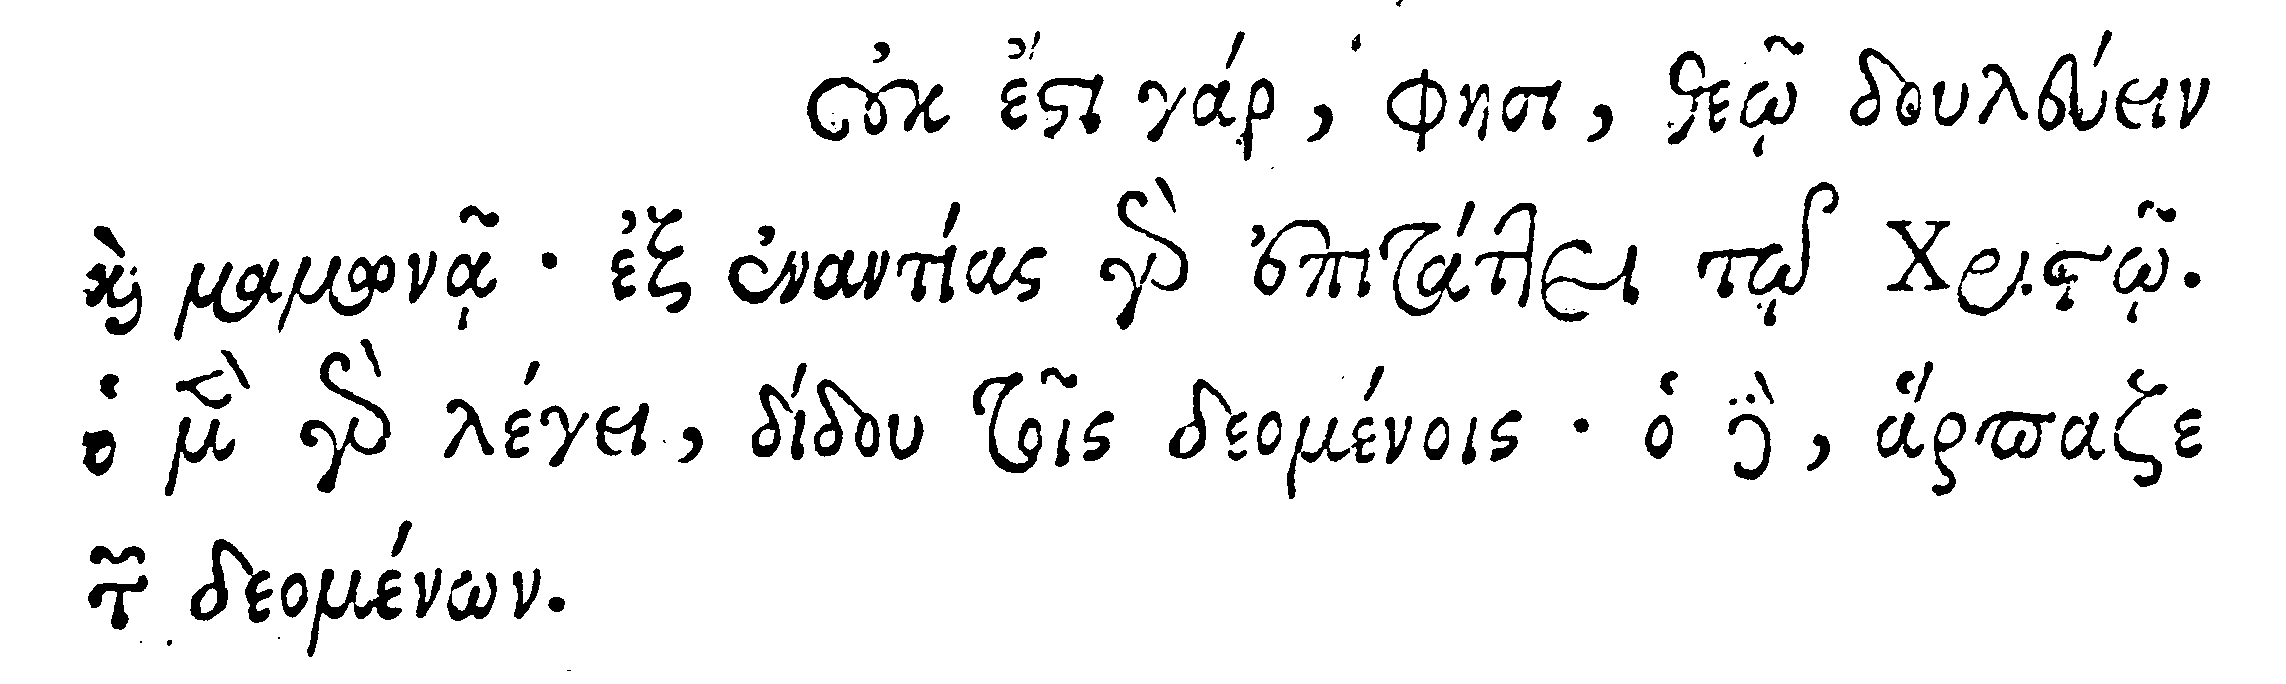 οὐκ ἔστι γάρ, φησι, θεῷ δουλεύειν
καὶ μαμωνᾷ· ἐξ ἐναντίας γὰρ ἐπιτάττει τῷ Χριστῷ.
ὁ μὲν γὰρ λέγει, δίδου τοῖς δεομένοις· ὁ δὲ, ἅρπαζε
τῶν δεομένων.